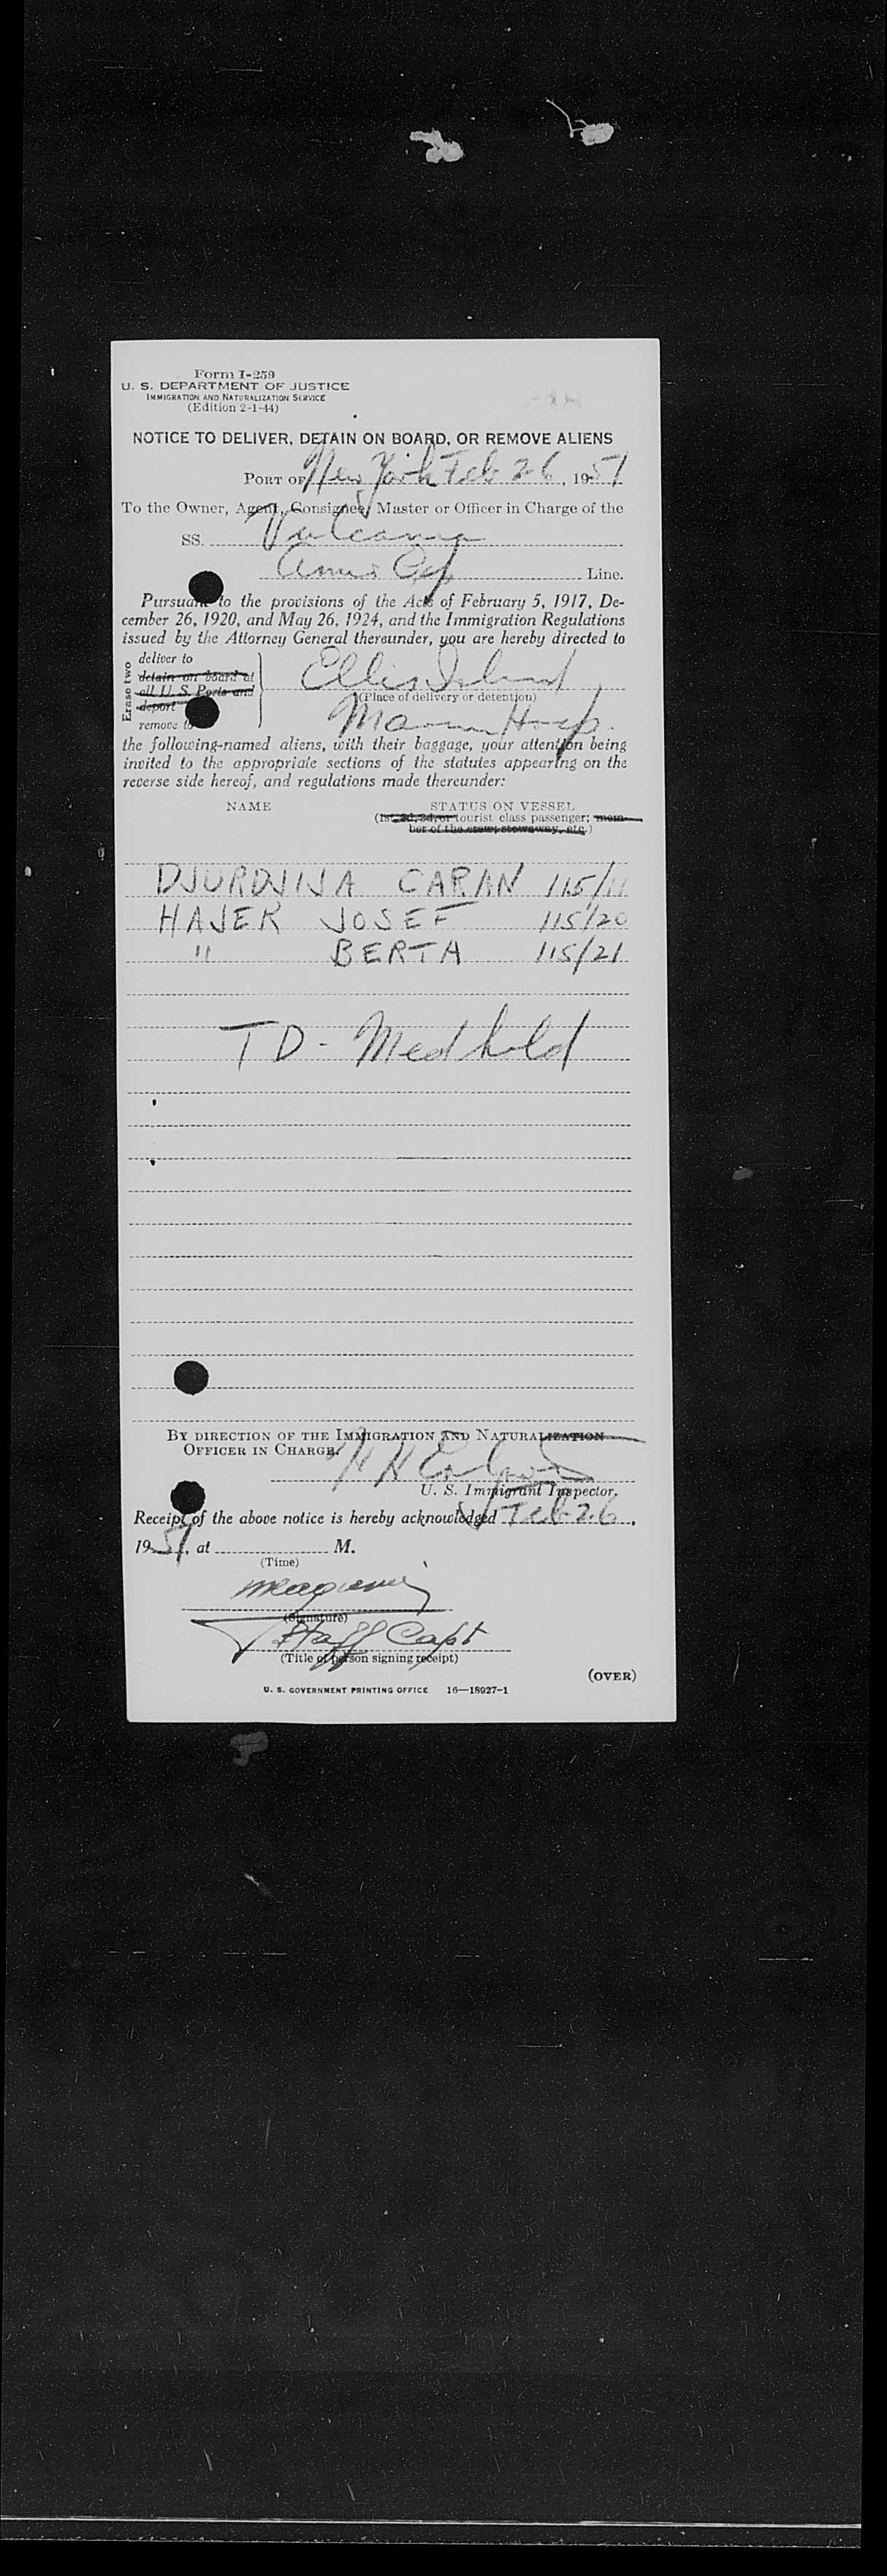 Form I-259
U. S. DEPARTMENT OF JUSTICE
IMMIGRATION AND NATURALIZATION SERVICE
(Edition 2-1-44)
NOTICE TO DELIVER, DETAIN ON BOARD, OR REMOVE ALIENS
PORT OF New York Feb 26, 1951
To the Owner, Agent, Consignee, Master or Officer in Charge of the
SS. Vulcania
Line.
Pursuant to the provisions of the Acts of February 5, 1917, De-
cember 26, 1920, and May 26, 1924, and the Immigration Regulations
issued by the Attorney General thereunder, you are hereby directed to
Erase two
deliver to
detain on board at
all U. S. Ports and
deport
remove to
Ellis Island
(Place of delivery or detention)
Hosp.
the following-named aliens, with their baggage, your attention being
invited to the appropriate sections of the statutes appearing on the
reverse side hereof, and regulations made thereunder:
NAME STATUS ON VESSEL
(1st, 2d, 3d, or tourist class passenger; mem-
ber of the crew; stowaway, etc.)
DJURDJIJA CARAN 115/11
HAJEK JOSEF 115/20
" BERTA 115/21
TD - Med hold
BY DIRECTION OF THE IMMIGRATION AND NATURALIZATION
OFFICER IN CHARGE.
U. S. Immigrant Inspector.
Receipt of the above notice is hereby acknowledged Feb 26,
1951, at M.
(Time)
(Signature)
Staff Capt
(Title of person signing receipt)
(OVER)
U. S. GOVERNMENT PRINTING OFFICE 16—18927-1